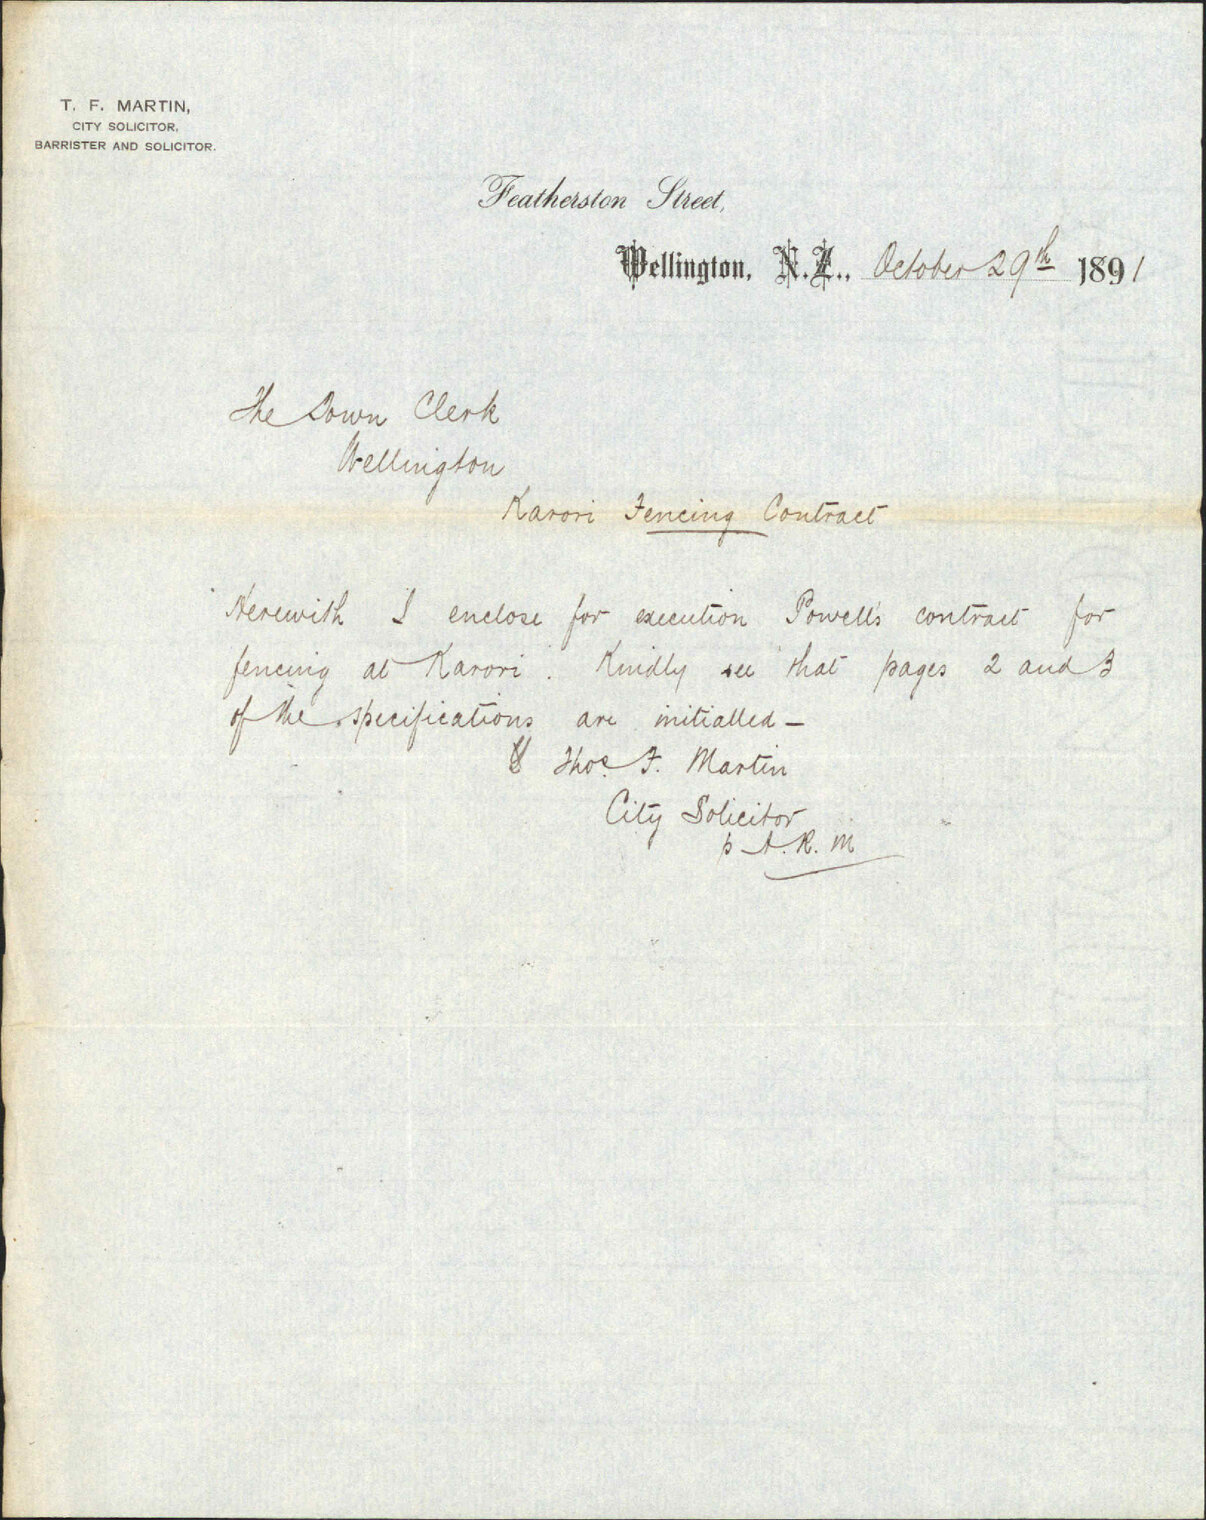 T. F. MARTIN,
CITY SOLICITOR,
BARRISTER AND SOLICITOR.
Featherston Street,
Wellington, N.Z., October 29th 1891
The Town Clerk
Wellington
Karori Fencing Contract
Herewith I enclose for execution Powell's contract for
fencing at Karori. Kindly see that pages 2 and 3
of the specifications are initialled –
Thos. F. Martin
City Solicitor
p A. R. M